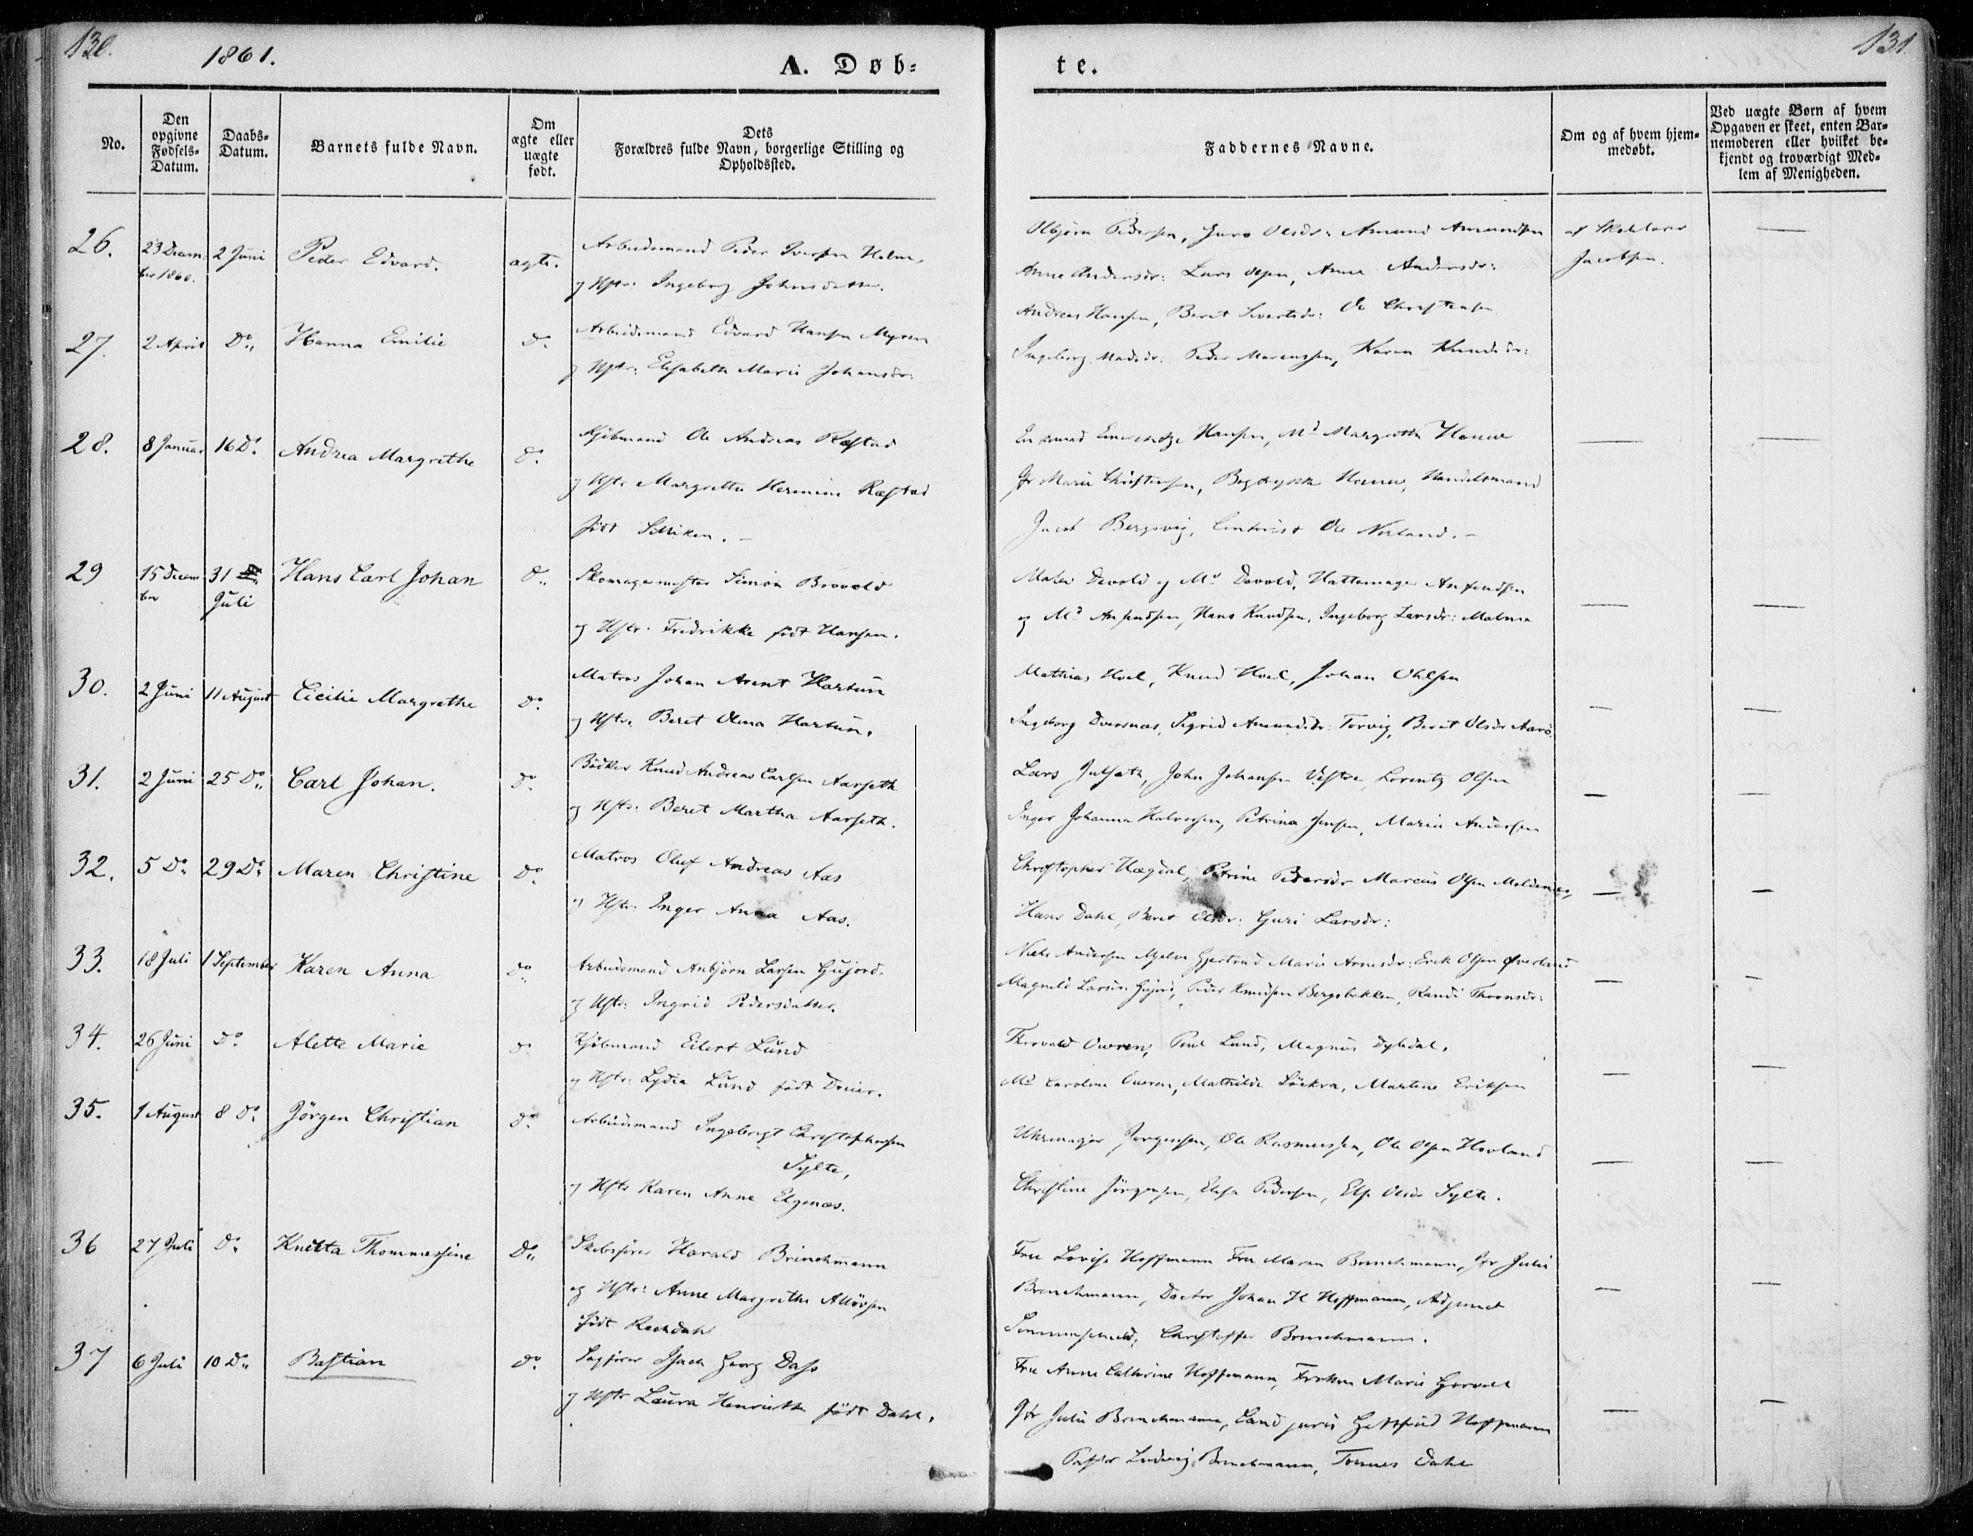 130.
1861.
A. Døb=
te.
131.
No.
Den opgivne Fødsels-Datum.
Daabs-Datum.
Barnets fulde Navn.
Om ægte eller uægte født.
Dets Forældres fulde Navn, borgerlige Stilling og Opholdssted.
Faddernes Navne.
Om og af hvem hjem-medøbt.
Ved uægte Børn af hvem Opgaven er skeet, enten Bar-nemoderen eller hvilket be-kjendt og troværdigt Med-lem af Menigheden.
26. 23 Decem- 2 Juni Peder Edvard. ægte. Arbeidsmand Peder Iversen
ber 1860. og Hstr: Ingeborg Johnsdatter.
Pedersen, Guro Olsdr: Amund Amundsen
Anne Andersdr: Lars Olsen, Anne Andersdr:
af Skolelærer
Jacobsen. —
27. 2 April Do. Hanna Emilie do Arbeidsmand Edvard Hansen Myren
og Hstr: Elisabeth Marie Johansdr:
Andreas Hansen, Beret Sivertsdr: Ole Christensen
Ingeborg Madsdr: Peder Marcussen, Karen Knudsdr:
28. 8 Januar 16 Do. Andrea Margrethe do. Kjøbmand Ole Andreas Ræstad
og Hstr Margrethe Hermine Ræstad
født
Hansen, Md Margrethe
Jfr Marie Christensen, Handelsmand
Jacob Bergsvig, Ole
— —
29 15 Decem 31 Juli Hans Carl Johan do. Skomagermester Simon Brovold
ber og Hstr. Fredrikke født Hansen.
Maler Devold og Md Devold, Hattemager
og Md Hans Knudsen, Ingeborg Larsdr: Malmen
— —
30. 2 Juni 11 August Cicilie Margrethe do. Matros Johan Arent Hartun
og Hstr. Beret Olena Hartun.
Mathias Hoel, Knud Hoel, Johan Ohlsen
Ingeborg Sigrid Amundsdr: Torvig, Beret Olsdr Aarø
— —
31. 2 Juni 25 Do. Carl Johan. do. Bødker Knud Andreas Carlsen Aarseth
og Hstr. Beret Martha Aarseth.
Lars Julseth, John Johansen Lorentz Olsen
Inger Johanna Halvorsen, Petrina Jensen, Marie Andersen
— —
32. 5 Do. 29 Do. Maren Christine do. Matros Oluf Andreas Aas
og Hstr: Inger Anna Aas.
Christopher Hægdal, Petrine Pedersdr Marcus Olsen Moldenæs,
Hans Dahl, Beret Olsdr: Guri Larsdr:
— —
33. 18 Juli 1 September Karen Anna do. Arbeidsmand Anbjørn Larsen Gujord.
og Hstr: Ingrid Pedersdatter.
Niels Andersen Mjelve Gjertrud Marie Arnesdr: Erik Olsen Øverland
Magnild Larsdr: Gujord, Peder Knudsen Bergsbakken, Randi Thronsdr:
— —
34. 26 Juni Do. Alette Marie do. Kjøbmand Eilert Lund
og Hstr: Lydia Lund født Dreier.
Thorvald Owren, Paul Lund, Magnus Dybdal.
Md Caroline Owren, Mathilde Martine Eriksen
— —
35. 1 August 8 Do. Jörgen Christian do. Arbeidsmand Ingebrigt Christophersen
Sylte,
og Hstr Karen Anne Elgenæs.
Uhrmager Jørgensen, Ole Rasmussen, Ole Olsen Hovland
Christine Jörgensen, Pedersen, Else Olsdr Sylte.
— —
36 27 Juli Do. Knutta Thommesine do. Skibsfører Harald Brinchmann
og Hstr: Anne Margrethe
født Rechdahl
Fru Lovise Hoffmann Fru Maren Brinchmann, Jfr Julie
Brinchmann, Doctor Johan H Hoffmann, Adjunct
Sommerschield, Christoffer Brinchmann.
— —
37 6 Juli 10 Do. Bastian do. Sagfører Isach Georg Dass
og Hstr Laura Henriette født Dahl.
Fru Anne Cathrine Hoffmann, Frøken Marie
Jfr Julie Brinchmann, Cand juris Gottfried Hoffmann
Ludvig Brinchmann, Tønnes Dahl
— —